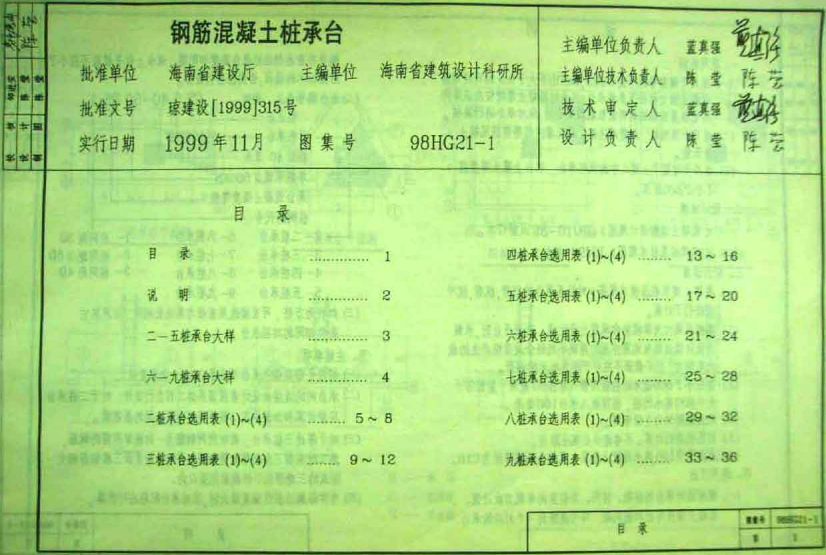 钢筋混凝土桩承台
批准单位 海南省建设厅 主编单位 海南省建筑设计科研所
批准文号 琼建设[1999]315号
实行日期 1999年11月 图集号 98HG21-1
主编单位负责人 蓝真强
主编单位技术负责人 陈莹 陈莹
技术审定人 蓝真强
设计负责人 陈莹 陈莹
目录
目录 ............... 1
说明 ............... 2
二—五桩承台大样 ............... 3
六—九桩承台大样 ............... 4
二桩承台选用表 (1)~(4) ......... 5~8
三桩承台选用表 (1)~(4) ......... 9~12
四桩承台选用表 (1)~(4) ........ 13~16
五桩承台选用表 (1)~(4) ........ 17~20
六桩承台选用表 (1)~(4) ........ 21~24
七桩承台选用表 (1)~(4) ........ 25~28
八桩承台选用表 (1)~(4) ........ 29~32
九桩承台选用表 (1)~(4) ........ 33~36
目录
图集号 98HG21-1
页 1